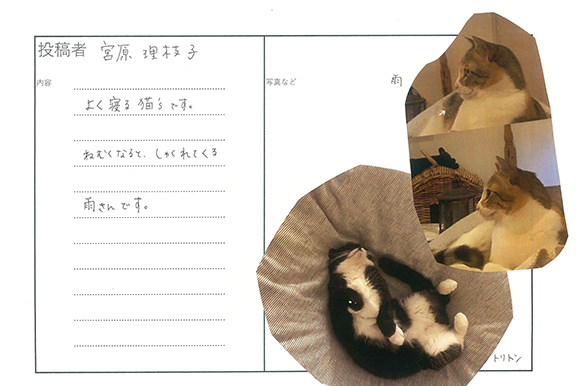 投稿者 宮原 理枝子
内容
よく寝る猫'sです。
ねむくなると、しゃくれてくる
雨さんです。
写真など
雨
トリトン